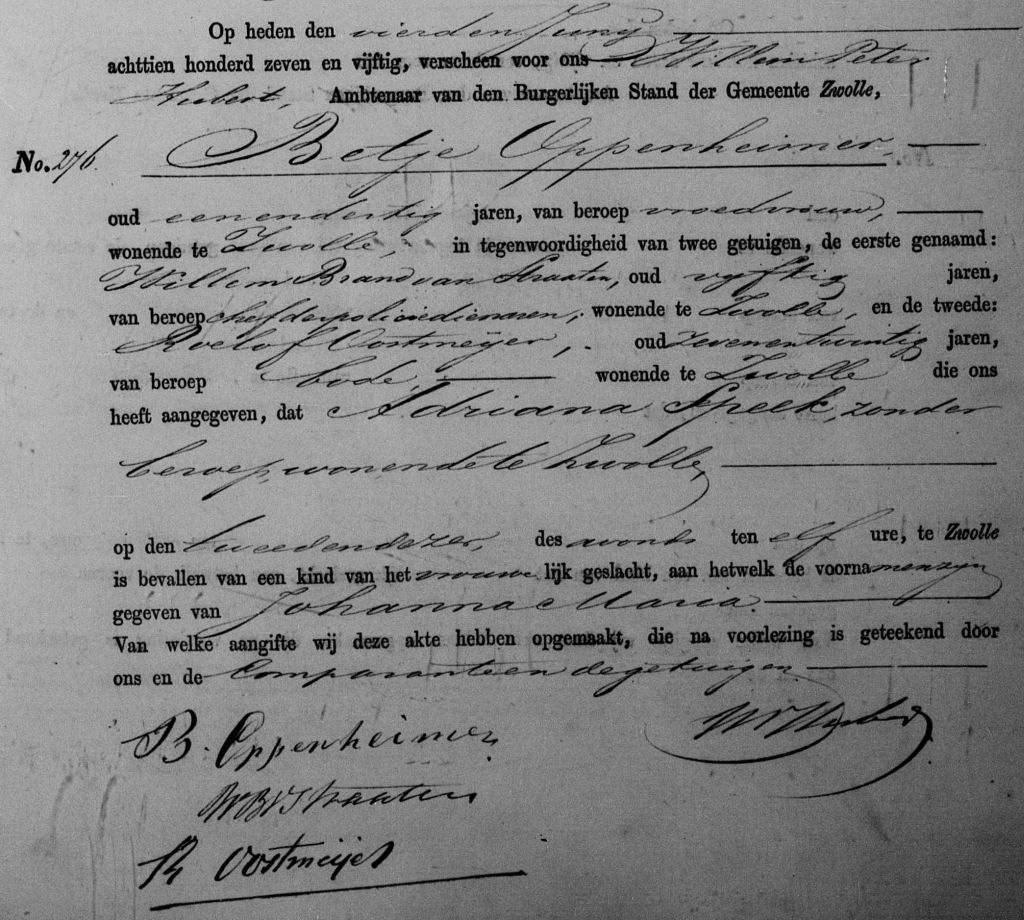 Op heden den vierden Juny
achttien honderd zeven en vijftig, verscheen voor ons Willem Peter
Hubert, Ambtenaar van den Burgerlijken Stand der Gemeente Zwolle,
No. 276. Betje Oppenheimer
oud eenendertig jaren, van beroep vroedvrouw,
wonende te Zwolle, in tegenwoordigheid van twee getuigen, de eerste genaamd:
Willem Brand van Straaten, oud vyftig jaren,
van beroep chef der policiedienaren, wonende te Zwolle, en de tweede:
Roelof Oostmeyer, oud zevenentwintig jaren,
van beroep bode, wonende te Zwolle die ons
heeft aangegeven, dat Adriana Speek, zonder
beroep, wonende te Zwolle,
op den tweeden dezer, des avonds ten elf ure, te Zwolle
is bevallen van een kind van het vrouwelijk geslacht, aan hetwelk de voornamen zyn
gegeven van Johanna Maria.
Van welke aangifte wij deze akte hebben opgemaakt, die na voorlezing is geteekend door
ons en de Comparante en de getuigen
B. Oppenheimer
WBVStraaten
R Oostmeijer